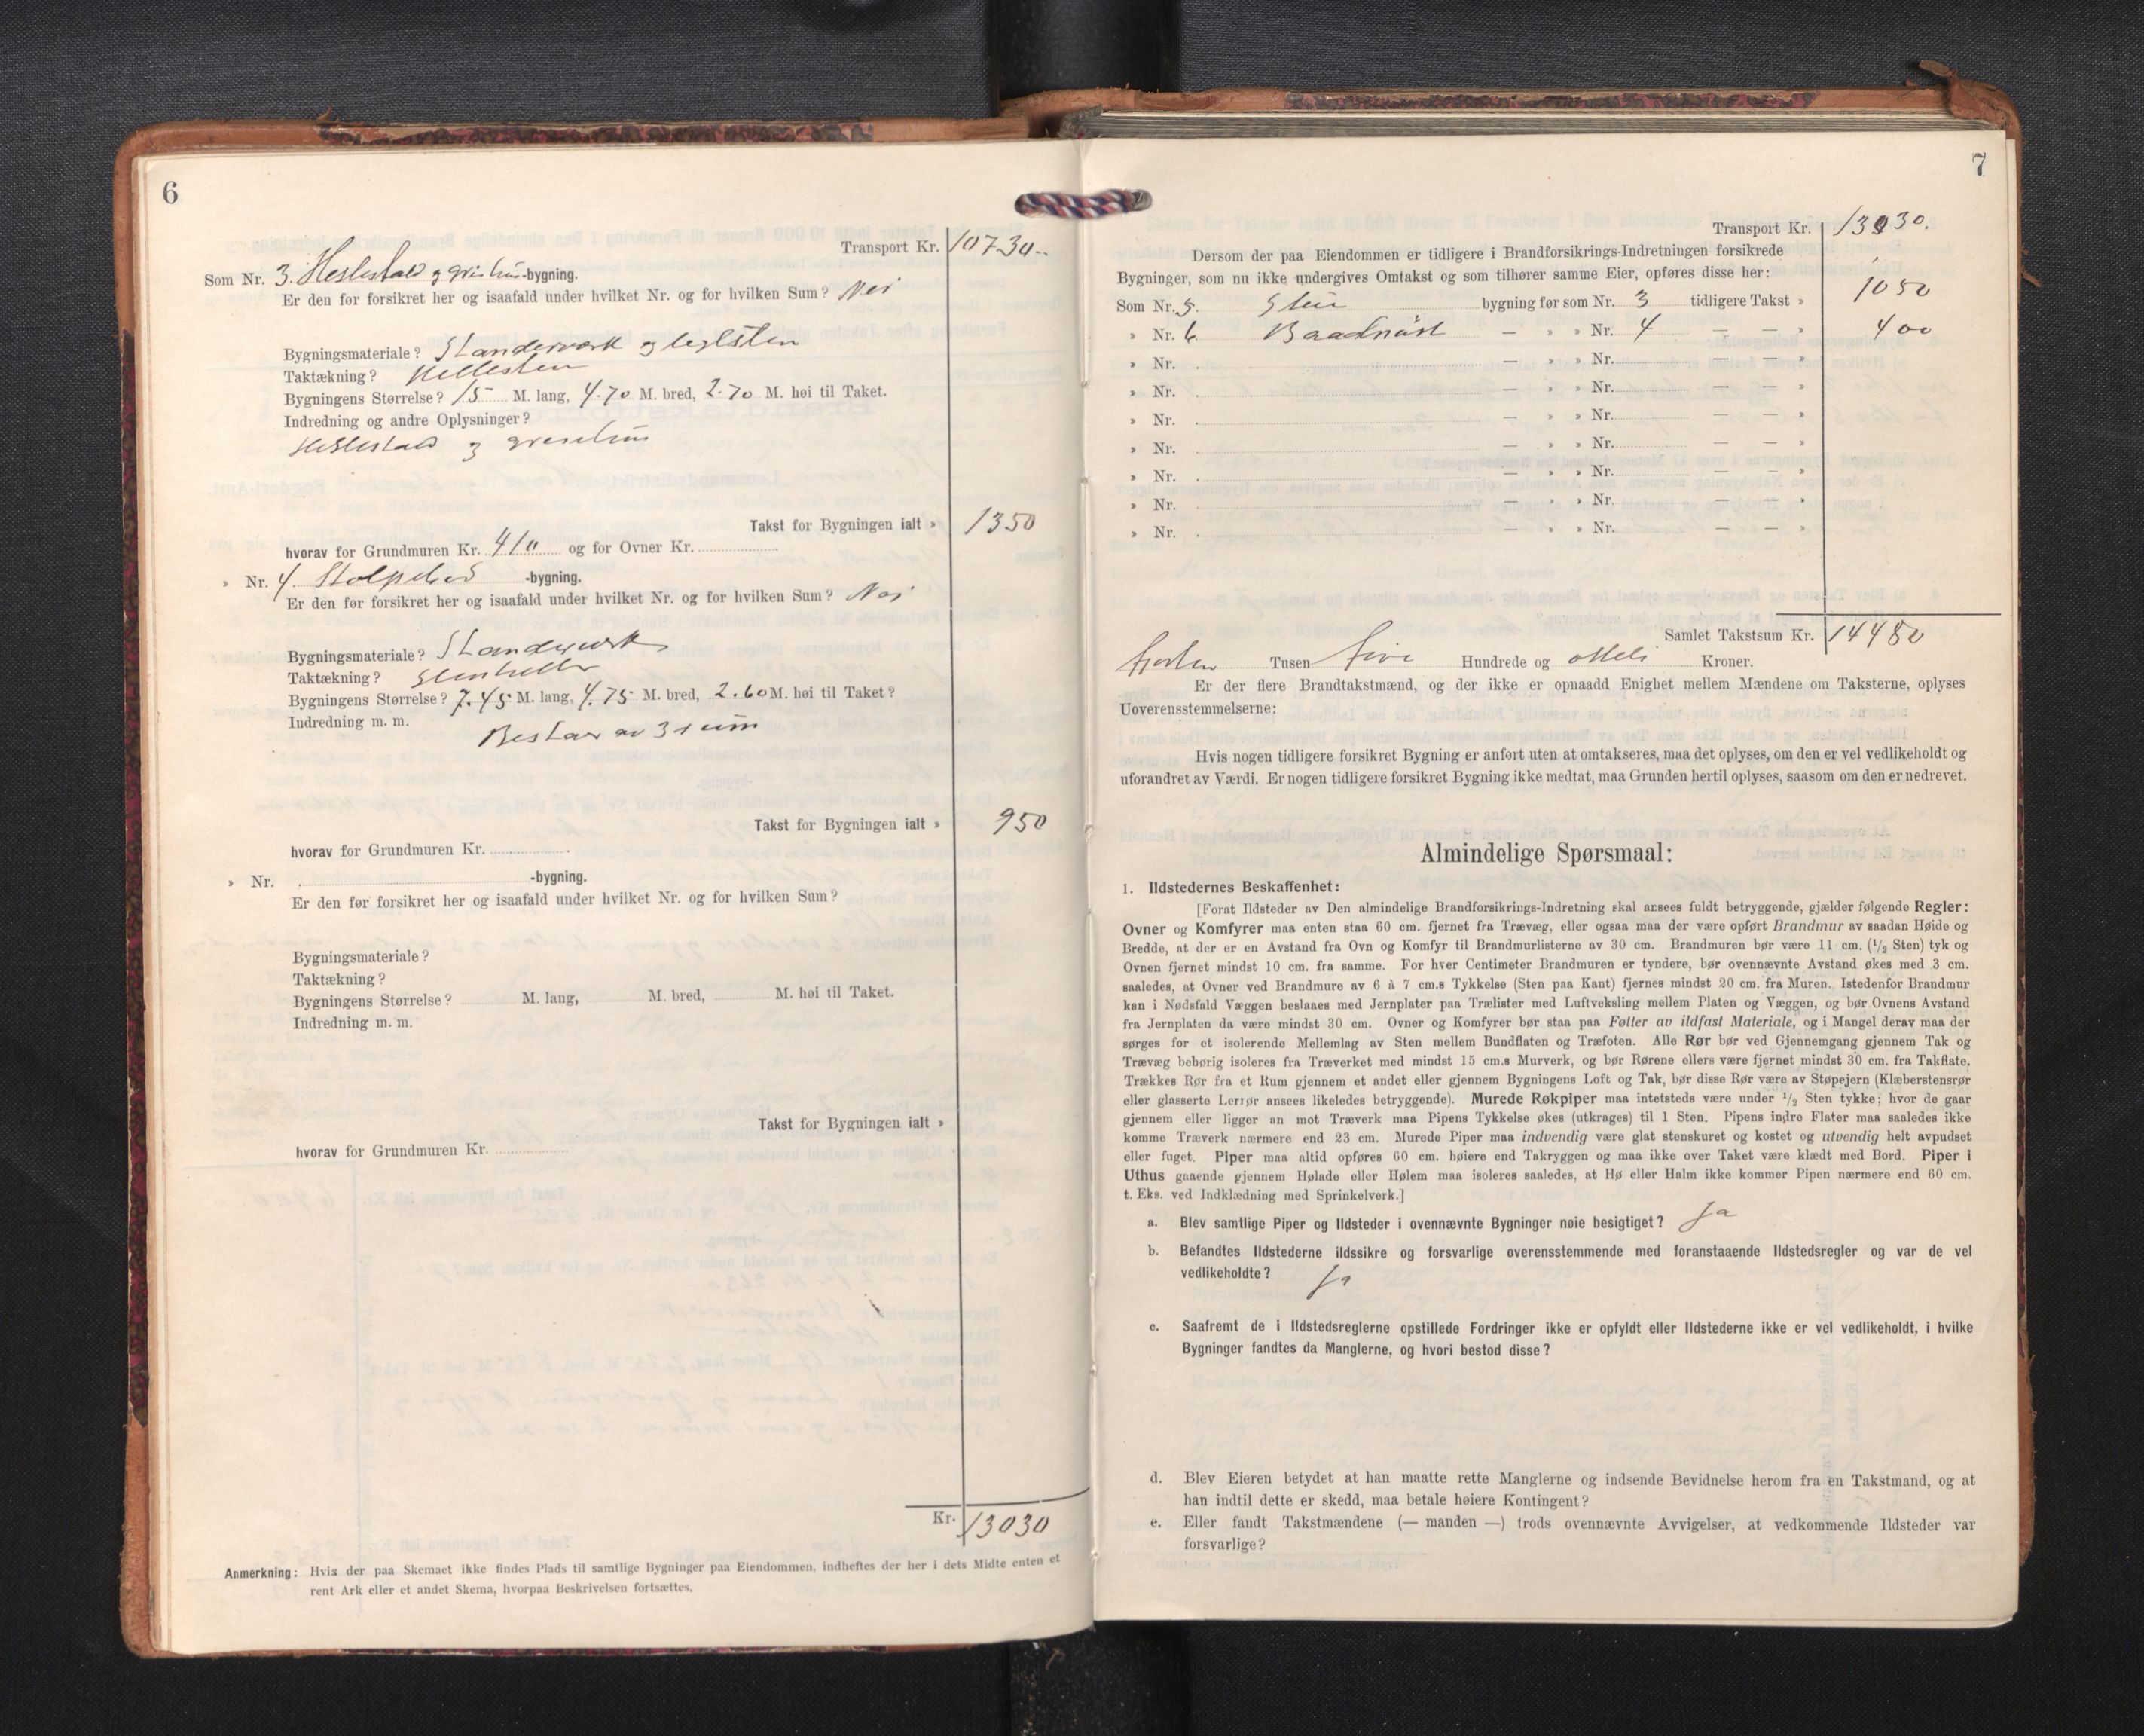 6
Transport Kr. 10730..
Som Nr. 3. Hestestald og grishus-bygning.
Er den før forsikret her og isaafald under hvilket Nr. og for hvilken Sum? Nei
Bygningsmateriale? Standerverk og teglsten
Taktækning? Hellesten
Bygningens Størrelse? 15 M. lang, 4.70 M. bred, 2.70 M. høi til Taket.
Indredning og andre Oplysninger?
Hestestald og grisehus
Takst for Bygningen ialt » 1350
hvorav for Grundmuren Kr. 410 og for Ovner Kr.
» Nr. 4. Stolpebod -bygning.
Er den før forsikret her og isaafald under hvilket Nr. og for hvilken Sum? Nei
Bygningsmateriale? Standerverk
Taktækning? Stenheller
Bygningens Størrelse? 7.45 M. lang, 4.75 M. bred, 2.60 M. høi til Taket?
Indredning m. m.
Bestaar av 3 rum
Takst for Bygningen ialt » 950
hvorav for Grundmuren Kr.
» Nr. -bygning.
Er den før forsikret her og isaafald under hvilket Nr. og for hvilken Sum?
Bygningsmateriale?
Taktækning?
Bygningens Størrelse? M. lang, M. bred, M. høi til Taket.
Indredning m. m.
Takst for Bygningen ialt »
hvorav for Grundmuren Kr.
Kr. 13030
Anmerkning: Hvis der paa Skemaet ikke findes Plads til samtlige Bygninger paa Eiendommen, indheftes der her i dets Midte enten et
rent Ark eller et andet Skema, hvorpaa Beskrivelsen fortsættes.
7
Transport Kr. 13030.
Dersom der paa Eiendommen er tidligere i Brandforsikrings-Indretningen forsikrede
Bygninger, som nu ikke undergives Omtakst og som tilhører samme Eier, opføres disse her:
Som Nr. 5. bygning før som Nr. 3 tidligere Takst » 1050
» Nr. 6 Baadnøst — » » Nr. 4 — — » 400
» Nr. — » » Nr. — — »
» Nr. — » » Nr. — — »
» Nr. — » » Nr. — — »
» Nr. — » » Nr. — — »
» Nr. — » » Nr. — — »
» Nr. — » » Nr. — — »
» Nr. — » » Nr. — — »
Samlet Takstsum Kr. 14480
fjorten Tusen fire Hundrede og otteti Kroner.
Er der flere Brandtakstmænd, og der ikke er opnaadd Enighet mellem Mændene om Taksterne, oplyses
Uoverensstemmelserne:
Hvis nogen tidligere forsikret Bygning er anført uten at omtakseres, maa det oplyses, om den er vel vedlikeholdt og
uforandret av Værdi. Er nogen tidligere forsikret Bygning ikke medtat, maa Grunden hertil oplyses, saasom om den er nedrevet.
Almindelige Spørsmaal:
1. Ildstedernes Beskaffenhet:
[Forat Ildsteder av Den almindelige Brandforsikrings-Indretning skal ansees fuldt betryggende, gjælder følgende Regler:
Ovner og Komfyrer maa enten staa 60 cm. fjernet fra Trævæg, eller ogsaa maa der være opført Brandmur av saadan Høide og
Bredde, at der er en Avstand fra Ovn og Komfyr til Brandmurlisterne av 30 cm. Brandmuren bør være 11 cm. (1/2 Sten) tyk og
Ovnen fjernet mindst 10 cm. fra samme. For hver Centimeter Brandmuren er tyndere, bør ovennævnte Avstand økes med 3 cm.
saaledes, at Ovner ved Brandmure av 6 à 7 cm.s Tykkelse (Sten paa Kant) fjernes mindst 20 cm. fra Muren. Istedenfor Brandmur
kan i Nødsfald Væggen beslaaes med Jernplater paa Trælister med Luftveksling mellem Platen og Væggen, og bør Ovnens Avstand
fra Jernplaten da være mindst 30 cm. Ovner og Komfyrer bør staa paa Føtter av ildfast Materiale, og i Mangel derav maa der
sørges for et isolerende Mellemlag av Sten mellem Bundflaten og Træfoten. Alle Rør bør ved Gjennemgang gjennem Tak og
Trævæg behørig isoleres fra Træverket med mindst 15 cm.s Murverk, og bør Rørene ellers være fjernet mindst 30 cm. fra Takflate.
Trækkes Rør fra et Rum gjennem et andet eller gjennem Bygningens Loft og Tak, bør disse Rør være av Støpejern (Klæberstensrør
eller glasserte Lerrør ansees likeledes betryggende). Murede Røkpiper maa intetsteds være under 1/2 Sten tykke; hvor de gaar
gjennem eller ligger an mot Træverk maa Pipens Tykkelse økes (utkrages) til 1 Sten. Pipens indre Flater maa saaledes ikke
komme Træverk nærmere end 23 cm. Murede Piper maa indvendig være glat stenskuret og kostet og utvendig helt avpudset
eller fuget. Piper maa altid opføres 60 cm. høiere end Takryggen og maa ikke over Taket være klædt med Bord. Piper i
Uthus gaaende gjennem Hølade eller Hølem maa isoleres saaledes, at Hø eller Halm ikke kommer Pipen nærmere end 60 cm.
t. Eks. ved Indklædning med Sprinkelverk.]
a. Blev samtlige Piper og Ildsteder i ovennævnte Bygninger nøie besigtiget? Ja
b. Befandtes Ildstederne ildssikre og forsvarlige overensstemmende med foranstaaende Ildstedsregler og var de vel
vedlikeholdte? Ja
c. Saafremt de i Ildstedsreglerne opstillede Fordringer ikke er opfyldt eller Ildstederne ikke er vel vedlikeholdt, i hvilke
Bygninger fandtes da Manglerne, og hvori bestod disse?
d. Blev Eieren betydet at han maatte rette Manglerne og indsende Bevidnelse herom fra en Takstmand, og at
han indtil dette er skedd, maa betale høiere Kontingent?
e. Eller fandt Takstmændene (— manden —) trods ovennævnte Avvigelser, at vedkommende Ildsteder var
forsvarlige?